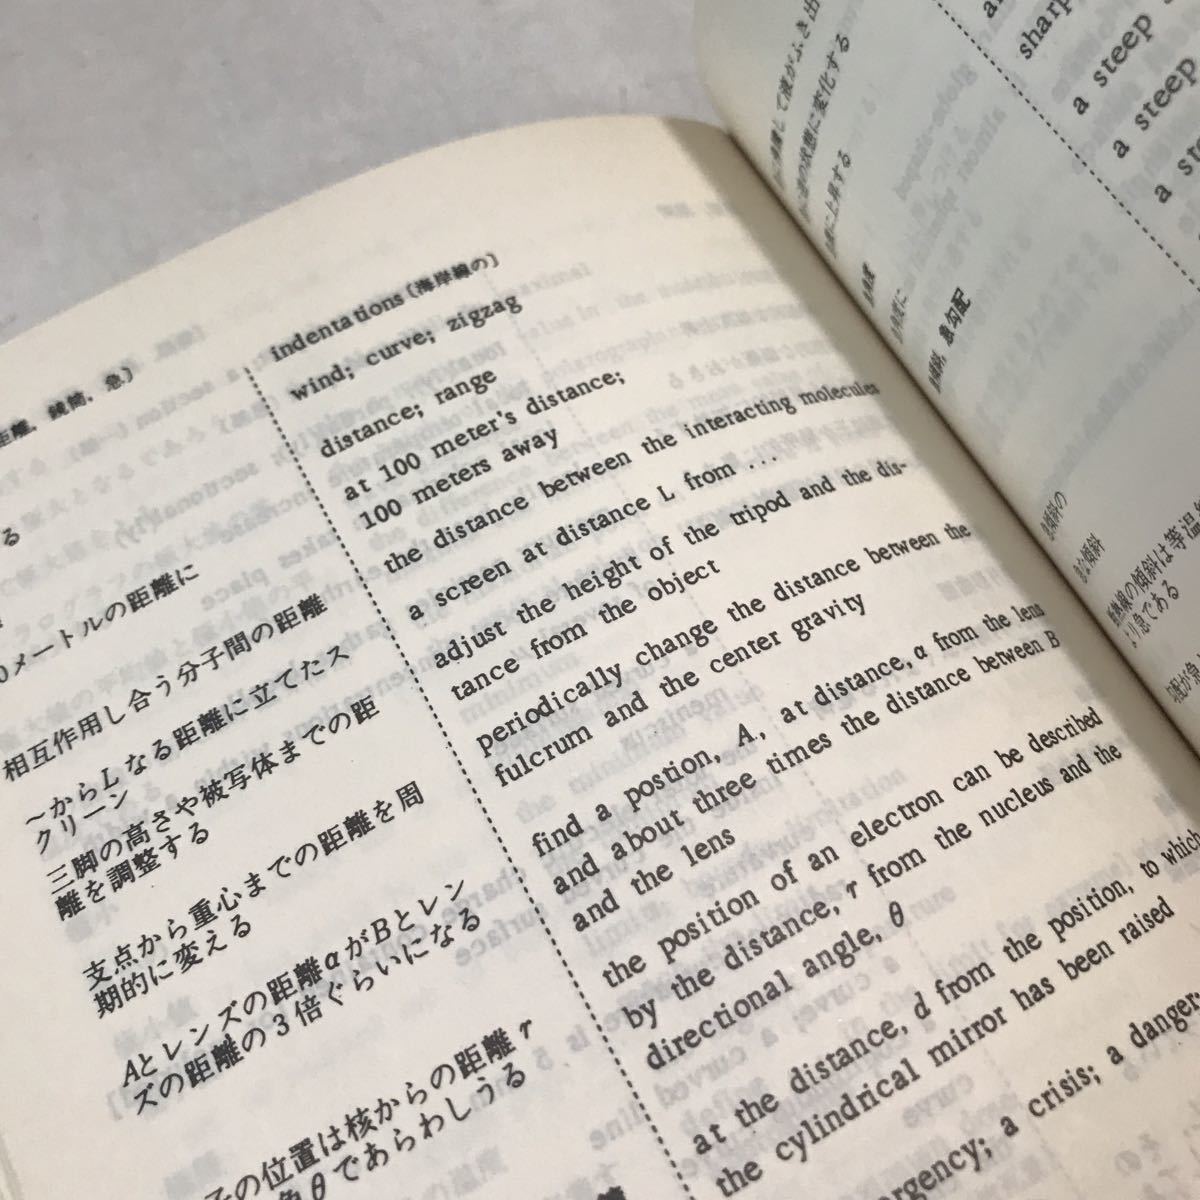 距離, 鏡筒, 急〕
る
0メートルの距離に
相互作用し合う分子間の距離
～からLなる距離に立てたス
クリーン
三脚の高さや被写体までの距
離を調整する
支点から重心までの距離を周
期的に変える
Aとレンズの距離αがBとレン
ズの距離の3倍ぐらいになる
子の位置は核からの距離r
角θであらわしうる
indentations〔海岸線の〕
wind; curve; zigzag
distance; range
at 100 meter's distance;
100 meters away
the distance between the interacting molecules
a screen at distance L from ...
adjust the height of the tripod and the dis-
tance from the object
periodically change the distance between the
fulcrum and the center gravity
find a postion, A, at distance, α from the lens
and about three times the distance between B
and the lens
the position of an electron can be described
by the distance, r from the nucleus and the
directional angle, θ
at the distance, d from the position, to which
the cylindrical mirror has been raised
ergency; a crisis; a danger.
して液がふき出
の状態に変化する
に上昇する
急角度
急角度に
急傾斜, 急勾配
急傾斜の
急な傾斜
断熱線の傾斜は等温
より急である
勾配が急
sharp
a steep
a steep
a steep
a st